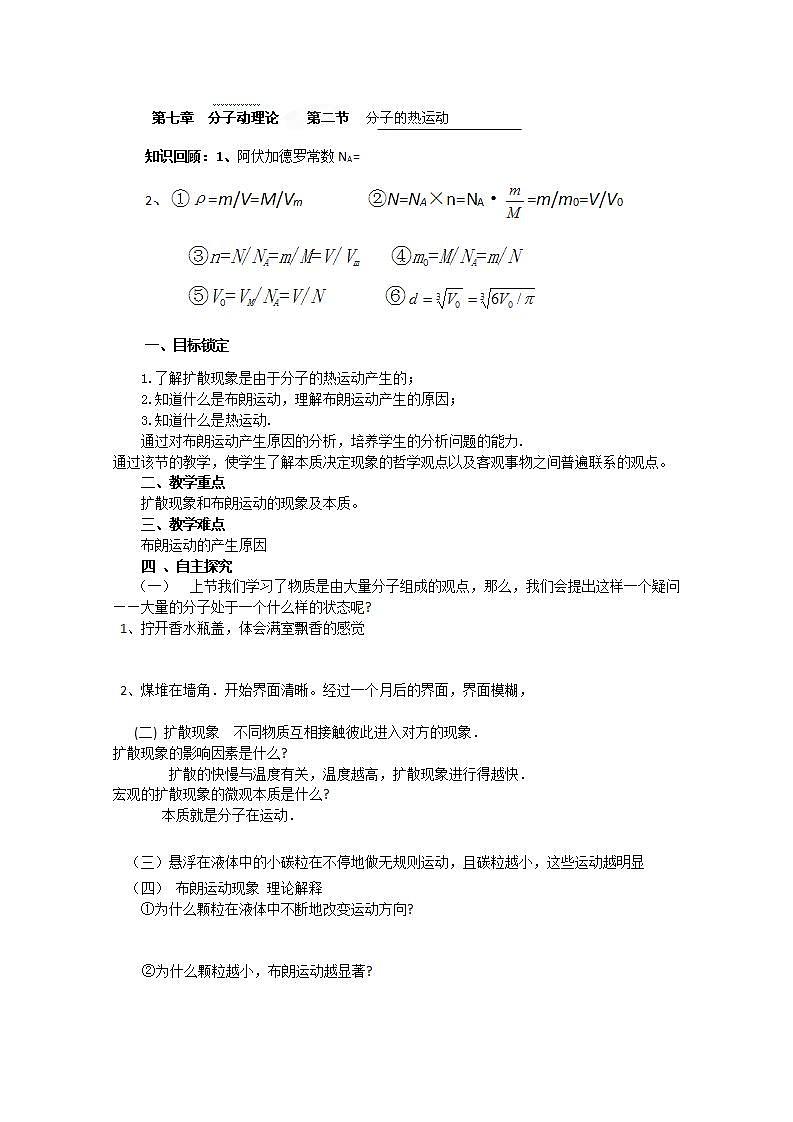 第七章 分子动理论 第二节 分子的热运动
知识回顾：1、阿伏加德罗常数 NA=
2、①ρ=m/V=M/Vm ②N=NA×n=NA·m/M=m/m0=V/V0
③n=N/NA=m/M=V/Vm ④m0=M/NA=m/N
⑤V0=VM/NA=V/N ⑥d=∛V0=∛6V0/π
一、目标锁定
1.了解扩散现象是由于分子的热运动产生的；
2.知道什么是布朗运动，理解布朗运动产生的原因；
3.知道什么是热运动.
通过对布朗运动产生原因的分析，培养学生的分析问题的能力.
通过该节的教学，使学生了解本质决定现象的哲学观点以及客观事物之间普遍联系的观点。
二、教学重点
扩散现象和布朗运动的现象及本质。
三、教学难点
布朗运动的产生原因
四 、自主探究
（一） 上节我们学习了物质是由大量分子组成的观点，那么，我们会提出这样一个疑问
——大量的分子处于一个什么样的状态呢?
1、拧开香水瓶盖，体会满室飘香的感觉
2、煤堆在墙角．开始界面清晰。经过一个月后的界面，界面模糊，
(二) 扩散现象 不同物质互相接触彼此进入对方的现象．
扩散现象的影响因素是什么?
扩散的快慢与温度有关，温度越高，扩散现象进行得越快．
宏观的扩散现象的微观本质是什么?
本质就是分子在运动．
（三）悬浮在液体中的小碳粒在不停地做无规则运动，且碳粒越小，这些运动越明显
（四） 布朗运动现象 理论解释
①为什么颗粒在液体中不断地改变运动方向?
②为什么颗粒越小，布朗运动越显著?